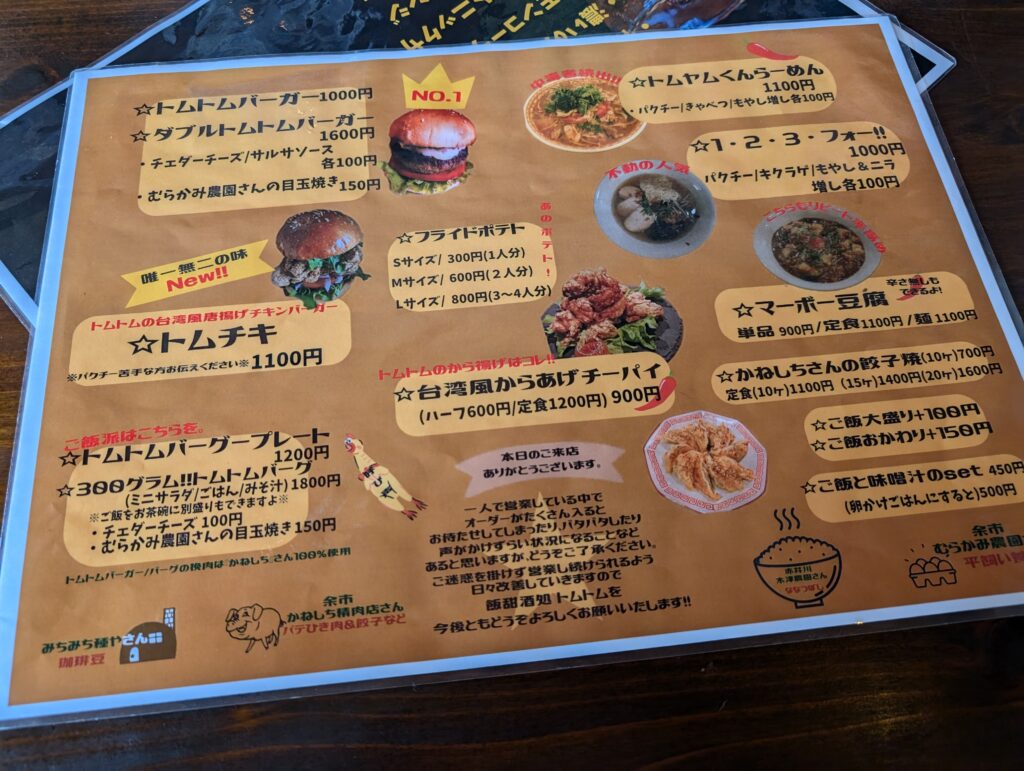 ☆トムトムバーガー1000円
☆ダブルトムトムバーガー
1600円
・チェダーチーズ/サルサソース
各100円
・むらかみ農園さんの目玉焼き150円
NO.1
中毒者続出!!
☆トムヤムくんらーめん
1100円
・パクチー/きゃべつ/もやし増し各100円
不動の人気
☆1・2・3・フォー!!
1000円
パクチー/キクラゲ/もやし&ニラ
増し各100円
唯一無二の味
New!!
トムトムの台湾風唐揚げチキンバーガー
☆トムチキ
※パクチー苦手な方お伝えください※1100円
あのポテト!
☆フライドポテト
Sサイズ/ 300円(1人分)
Mサイズ/ 600円(2人分)
Lサイズ/ 800円(3~4人分)
辛さ無しも
できるよ!
☆マーボー豆腐
単品 900円/定食1100円/麺1100円
トムトムのから揚げはコレ!!
☆台湾風からあげチーパイ
(ハーフ600円/定食1200円) 900円
☆かねしちさんの餃子焼(10ヶ)700円
定食(10ヶ)1100円 (15ヶ)1400円(20ヶ)1600円
☆ご飯大盛り+100円
☆ご飯おかわり+150円
☆ご飯と味噌汁のset 450円
(卵かけごはんにすると)500円
ご飯派はこちらを。
☆トムトムバーグープレート
1200円
☆300グラム!!トムトムバーグ
(ミニサラダ/ごはん/みそ汁)1800円
※ご飯をお茶碗に別盛りもできますよ※
・チェダーチーズ 100円
・むらかみ農園さんの目玉焼き150円
トムトムバーガー/バーグの挽肉は「かねしち」さん100%使用
本日のご来店
ありがとうございます。
一人で営業している中で
オーダーがたくさん入ると
お待たせしてしまったり、バタバタしたり
声がかけずらい状況になることなど
あると思いますが、どうぞご了承ください。
ご迷惑を掛けず営業し続けられるよう
日々改善していきますので
飯甜酒処 トムトムを
今後ともどうぞよろしくお願いいたします!!
みちみち種やさん
珈琲豆
余市
かねしち精肉店さん
パテひき肉&餃子など
赤井川
木津農園さん
ななつぼし
余市
むらかみ農園
平飼い